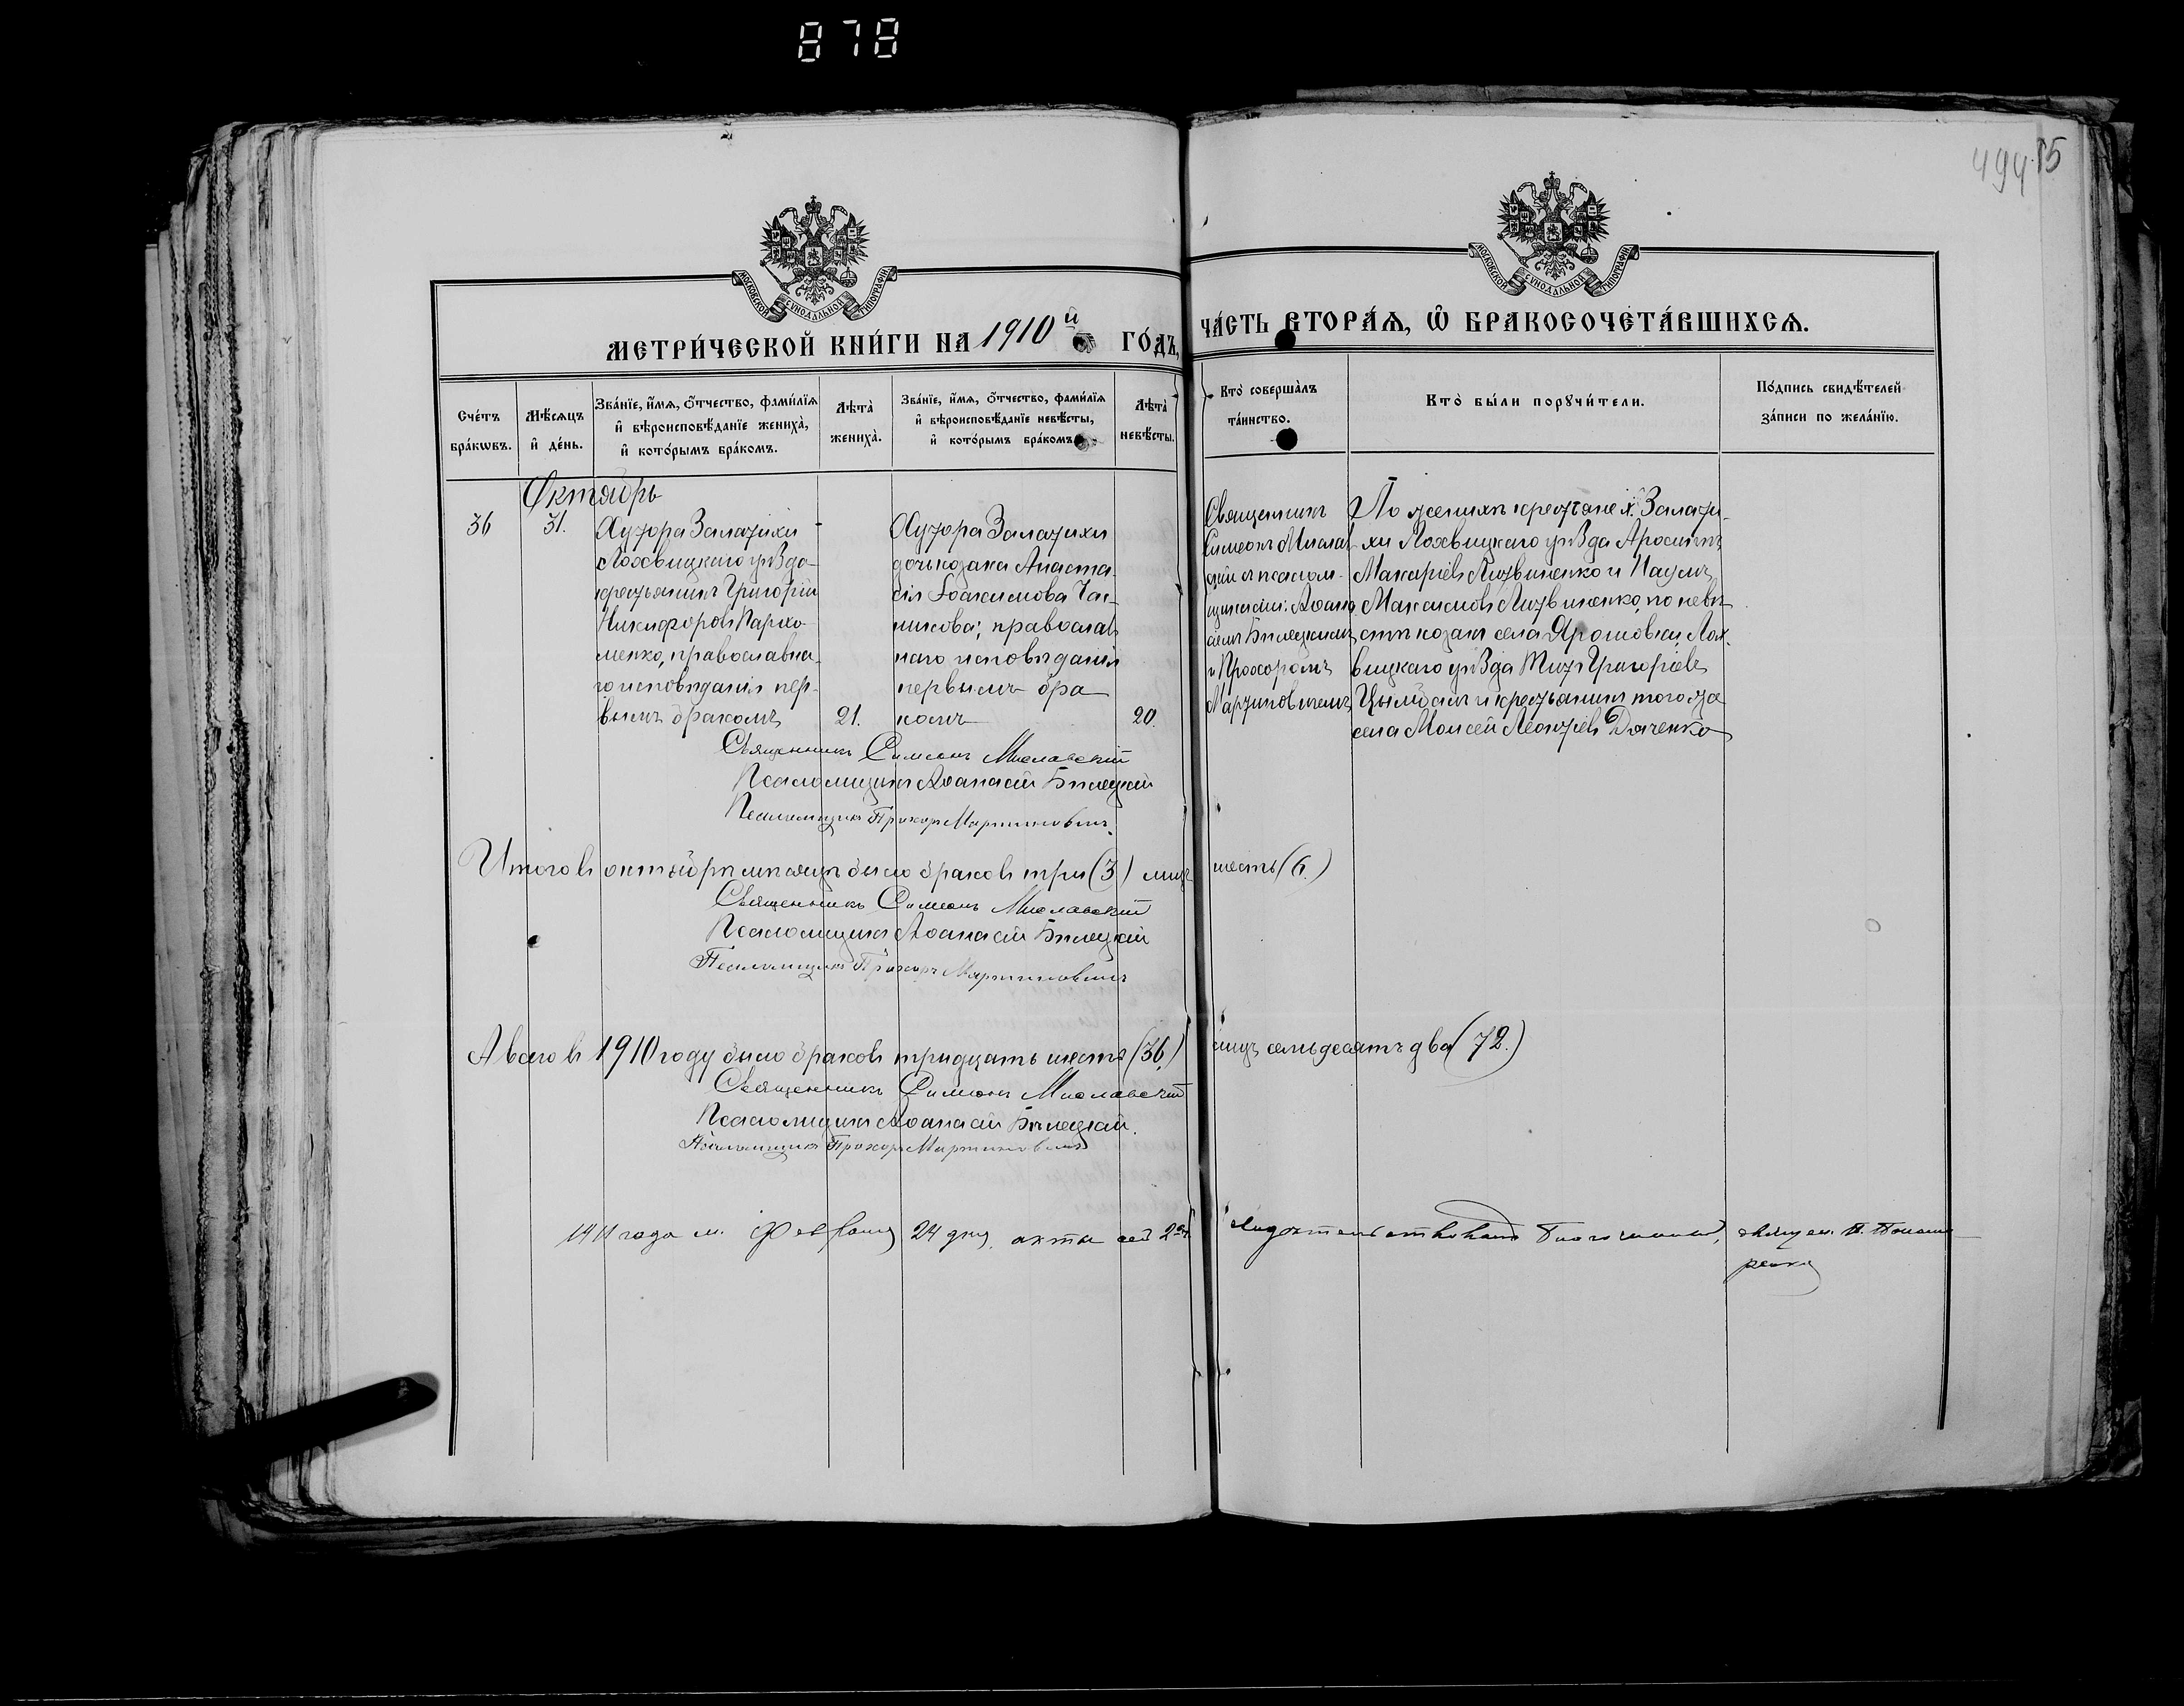 878
494 15
МОСКОВСКОЙ СУНОДАЛЬНОЙ ТИПОГРАФІИ
МОСКОВСКОЙ СУНОДАЛЬНОЙ ТИПОГРАФІИ
МЕТРИ́ЧЕСКОЙ КНИ́ГИ НА 1910 й ГО́ДЪ,
ЧА́СТЬ ВТОРА́Я, Ѡ҆ БРАКОСОЧЕТА́ВШИХСЯ.
Сче́тъ бра́кѡвъ.
Мѣ́сяцъ и҆ де́нь.
Зва́нїе, и҆́мя, ѻ҆́тчество, фами́лїя
и҆ вѣроисповѣ́данїе жениха̀,
и҆ кото́рымъ бра́комъ.
Лѣта̀ жениха̀.
Зва́нїе, и҆́мя, ѻ҆́тчество, фами́лїя
и҆ вѣроисповѣ́данїе невѣ́сты,
и҆ кото́рымъ бра́комъ
Лѣта̀ невѣ́сты.
Кто̀ соверша̀лъ
та́инство.
Кто̀ бы́ли порꙋчи́тели.
По́дпись свидѣ́телей
за́писи по жела́нїю.
Октябрь
36
31.
Хутора Залатихи
Лохвицкаго уѣзда
крестьянинъ Григорій
Никифоровъ Пархо-
менко, православна-
го исповѣданія пер-
вымъ бракомъ
21.
Хутора Залатихи
дочь козака Анаста-
сія
нікова; православ
наго исповѣданія
первымъ бра
комъ
20.
Священникъ
Симеонъ Мислав
скій съ псалом-
щиками: Аѳана
сіемъ Билецкимъ
и Прохоромъ
Мартиновичемъ
По женихѣ крестьяне х. Залати-
хи Лохвицкаго уѣзда
Макаріевъ Литвиненко и Наумъ
Максимовъ Литвиненко, по невѣ
стѣ козакъ села Ярошовки Лох-
вицкаго уѣзда Титъ Григоріевъ
Цымбалъ и крестьянинъ того же
села Моисей Леонтіевъ Дяченко
Священникъ Симеонъ Миславскій
Псаломщикъ Аѳанасій Билецкій
Псаломщикъ Прохоръ Мартиновичъ
Итого въ октябрѣ мѣсяцѣ было браковъ три (3) лицъ шесть (6.)
Священникъ Симеонъ Миславскій
Псаломщикъ Аѳанасій Билецкій
Псаломщикъ Прохоръ Мартиновичъ
А всего въ 1910 году было браковъ тридцать шесть (36.) лицъ семьдесятъ два (72.)
Священникъ Симеонъ Миславскій
Псаломщикъ Аѳанасій Билецкій.
Псаломщикъ Прохоръ Мартиновичъ
1911 года м. Февраля 24 дня